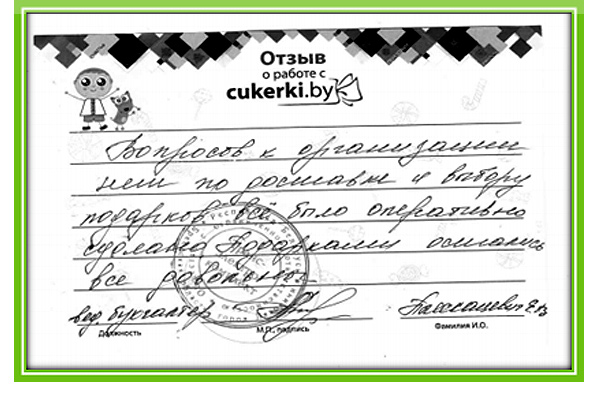 Отзыв
о работе с
cukerki.by
Вопросов к организации
нет по доставке и выбору
подарков всё было оперативно
сделано Подарками остались
все довольны.
вед. бухгалтер
Должность
М.П., подпись
Фамилия И.О.